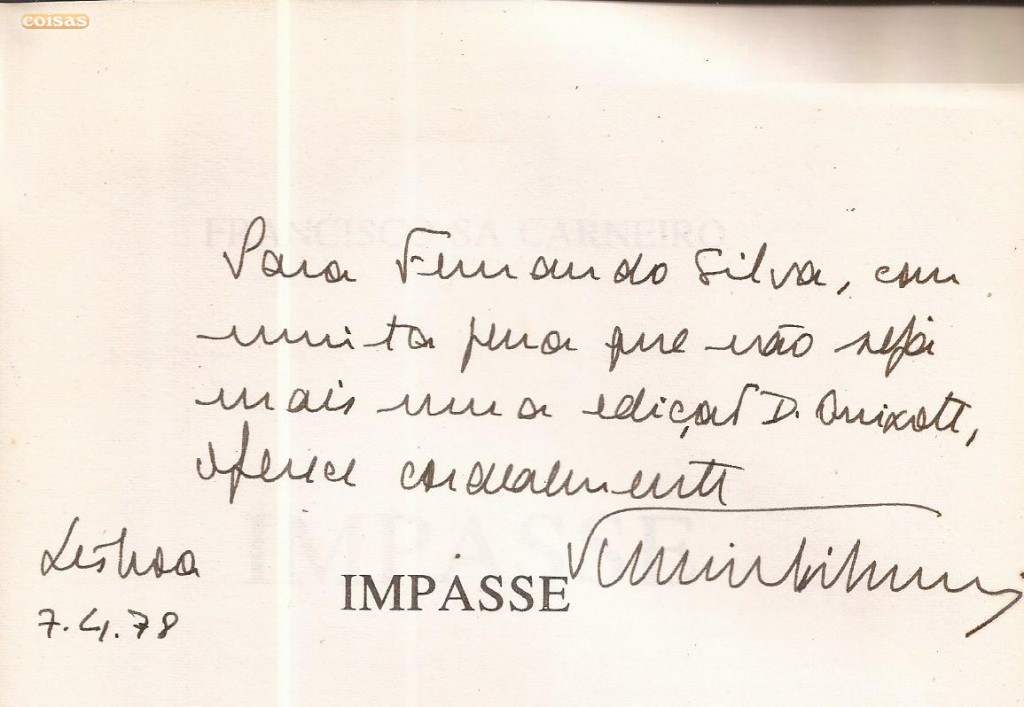 coisas
FRANCISCO SÁ CARNEIRO
Para Fernando Silva, com
muita pena que não seja
mais uma edição D. Quixote,
oferece cordealmente
IMPASSE
Lisboa
IMPASSE
7.4.78